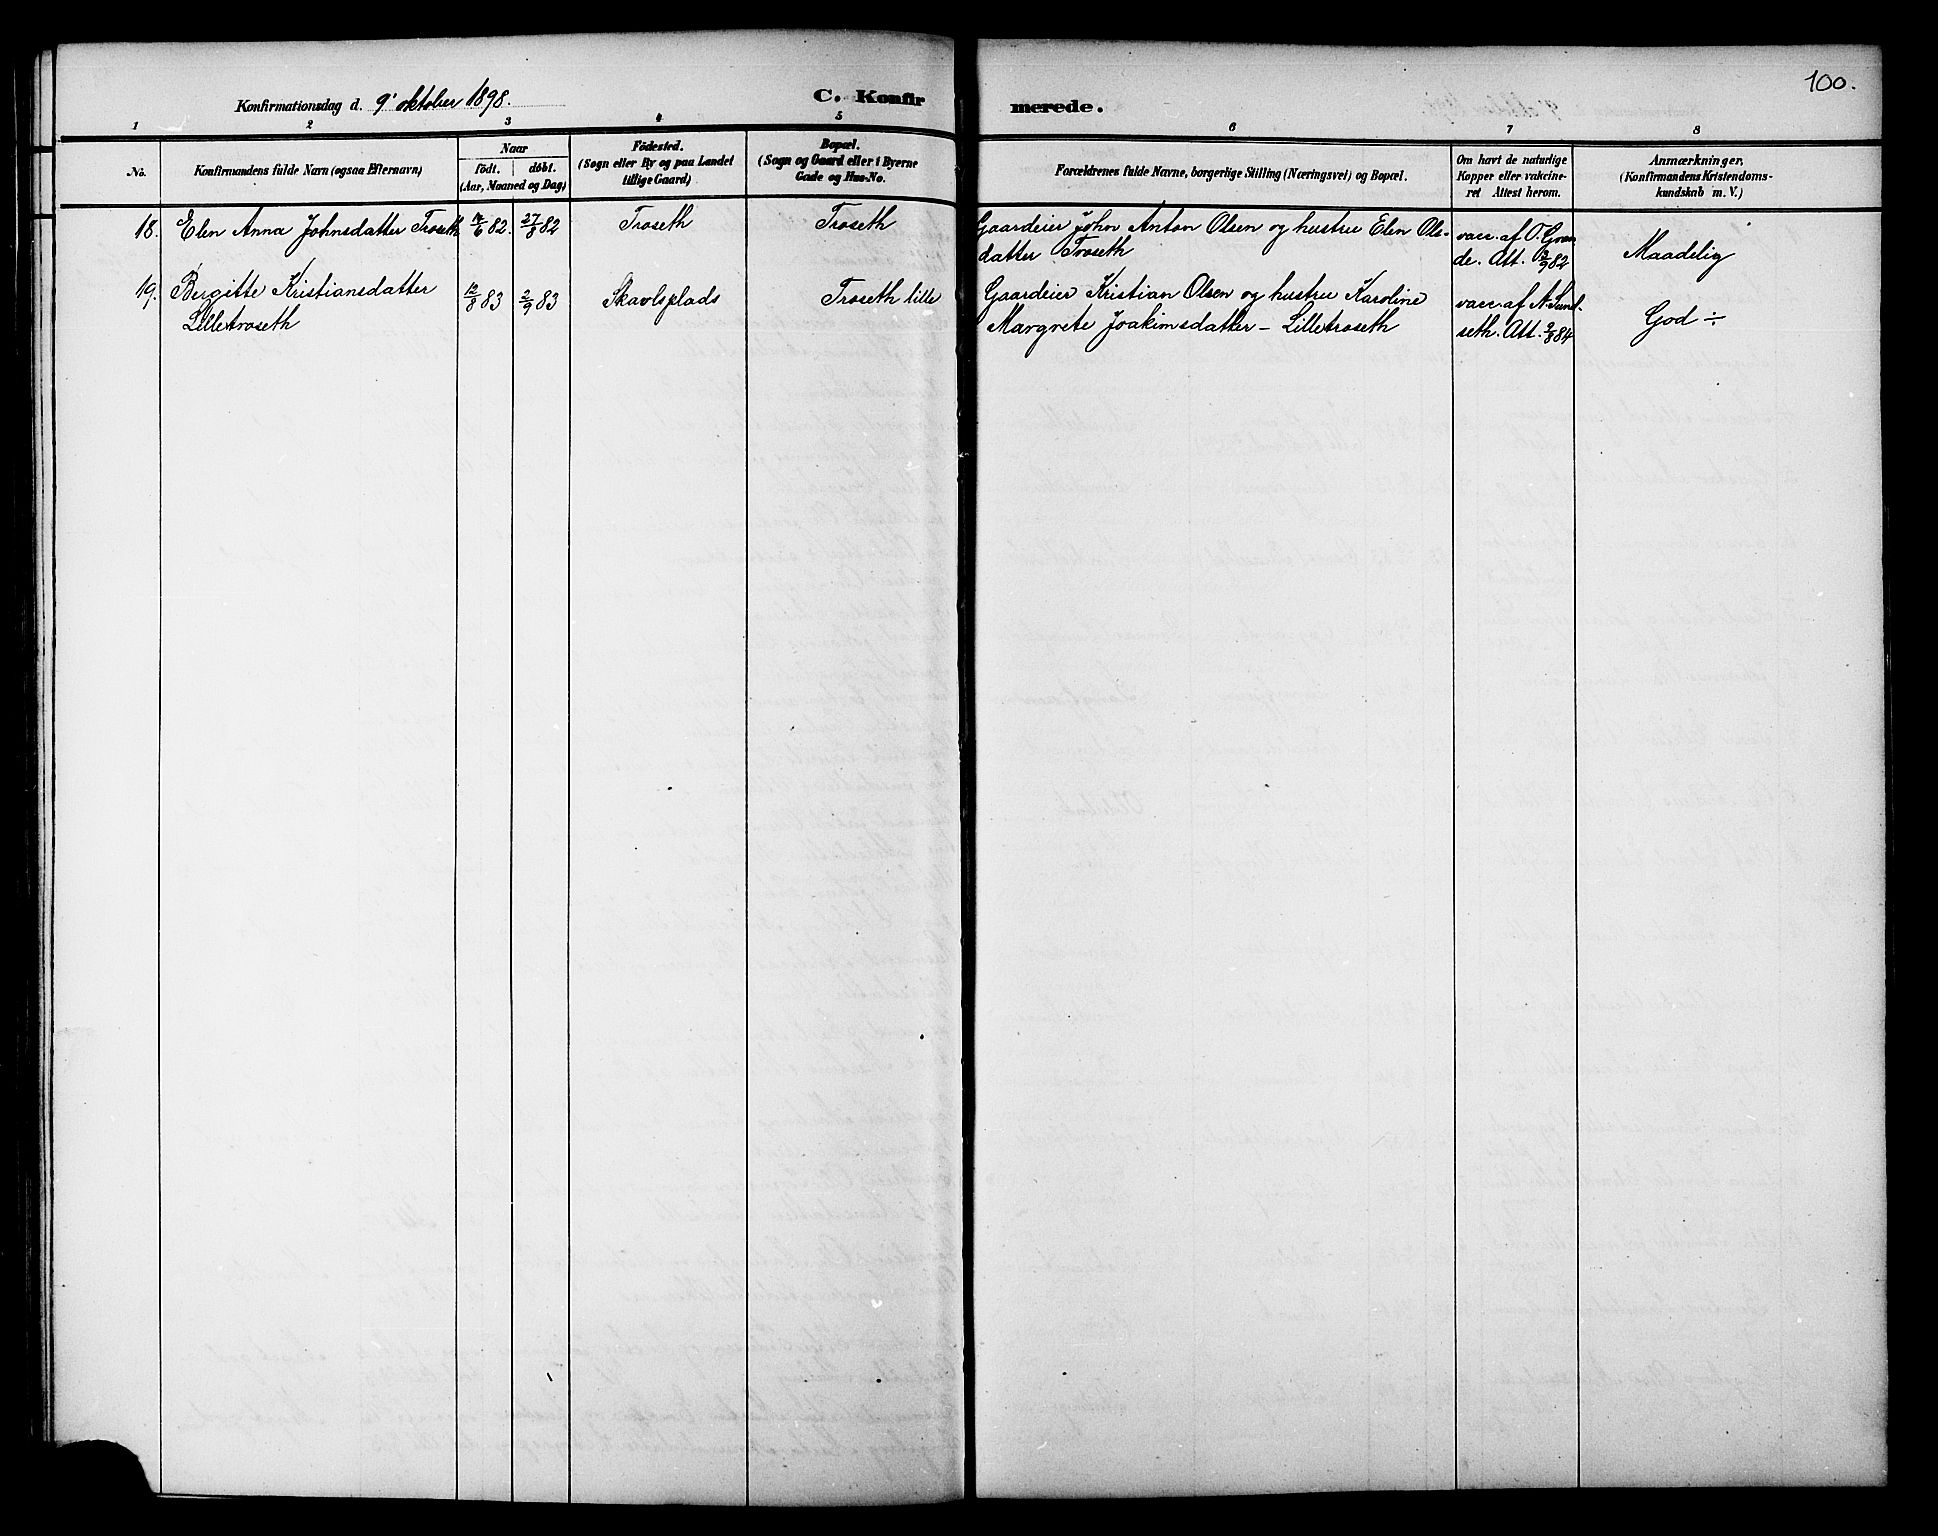 100.
Konfirmationsdag d. 9' oktober 1898. C. Konfirmerede.
1 2 3 4 5 6 7 8
No. Konfirmandens fulde Navn (ogsaa Efternavn) Naar födt. döbt. (Aar, Maaned og Dag) Födested. (Sogn eller By og paa Landet tillige Gaard) Bopæl. (Sogn og Gaard eller i Byerne Gade og Hus-No. Forældrenes fulde Navne, borgerlige Stilling (Næringsvei) og Bopæl. Om havt de naturlige Kopper eller vakcineret Attest herom. Anmærkninger, (Konfirmandens Kristendomskundskab m. V.)
18. Elen Anna Johnsdatter Troseth 7/6 82. 27/8 82 Troseth Troseth Gaardeier John Anton Olsen og hustru Elen Ols- vacc. af O. Gran
datter Troseth de. Att. 2/9 82 Maadelig
19. Bergitte Kristiansdatter 12/8 83 2/9 83 Skavlsplads Troseth lille Gaardeier Kristian Olsen og hustru Karoline vacc. af N. Sund-
Lilletroseth Margrete Joakimsdatter – Lilletroseth seth. Att. 9/8 84 God ÷